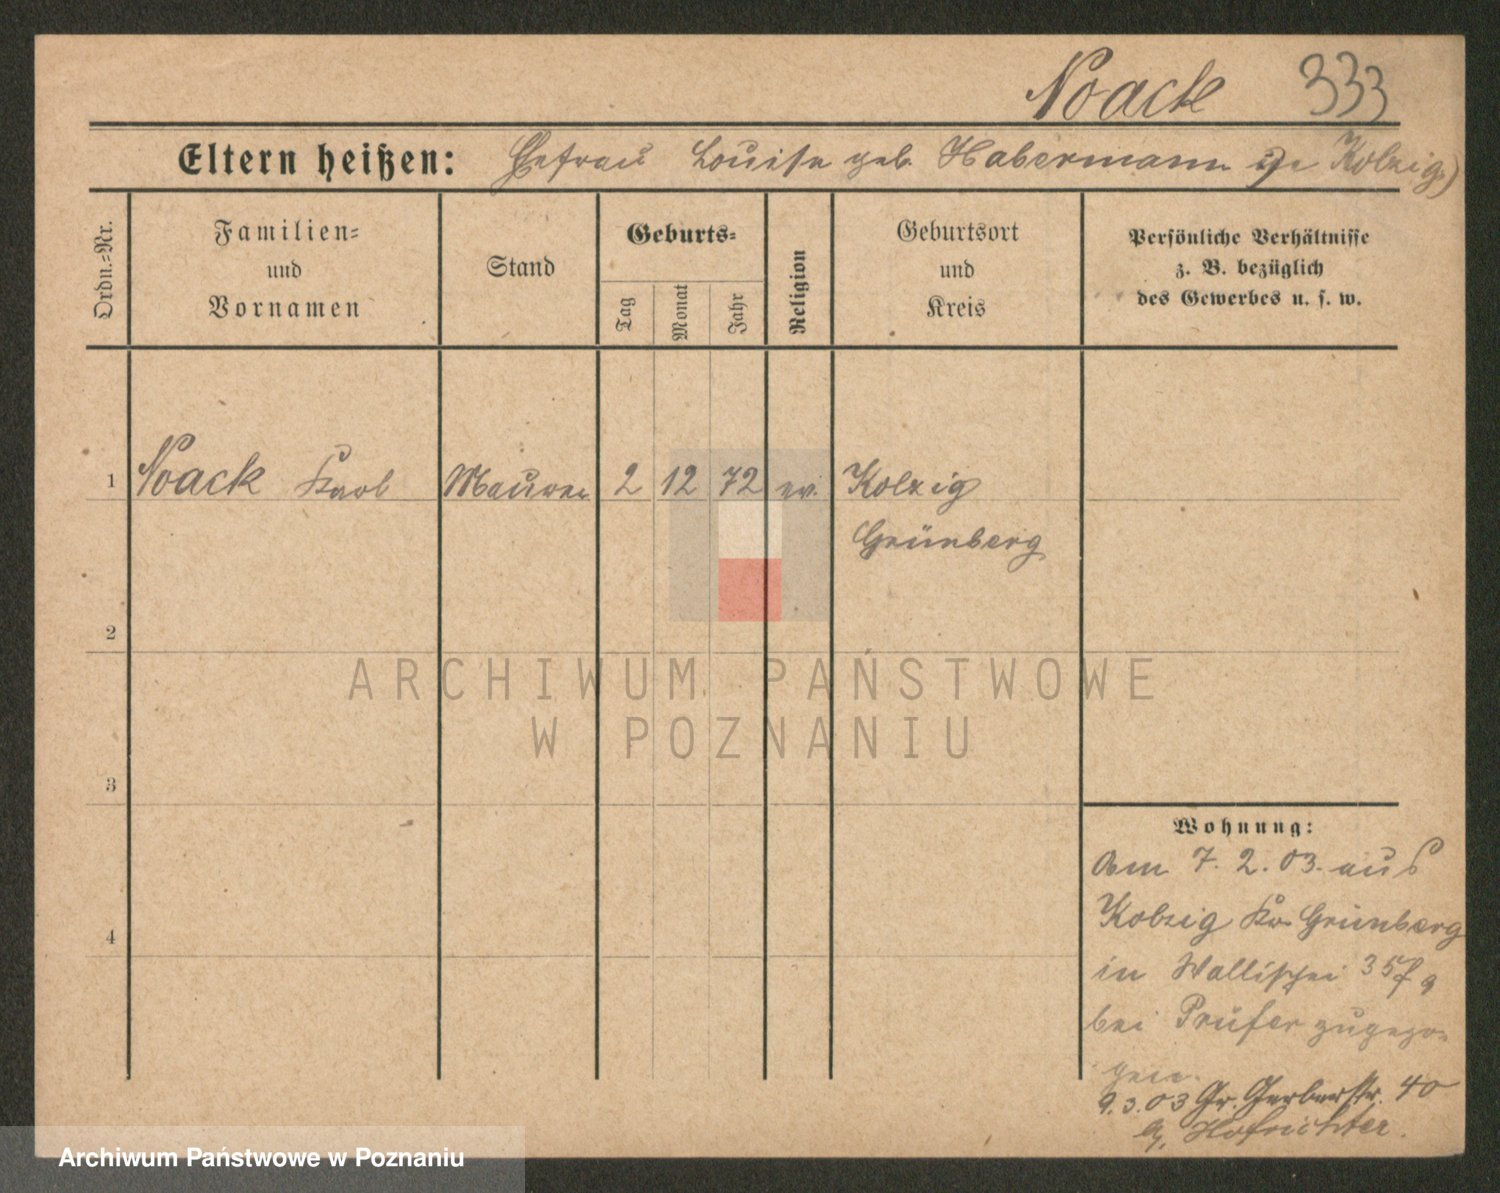 Noack 333
Eltern heißen: Ehefrau Louise geb. Habermann in Kolzig)
Ordn.=Nr.
Familien=
und
Vornamen
Stand
Geburts=
Tag
Monat
Jahr
Religion
Geburtsort
und
Kreis
Persönliche Verhältnisse
z. B. bezüglich
des Gewerbes u. s. w.
1 Noack Karl Maurer 2 12 72 ev. Kolzig
Grünberg
2
3
4
Wohnung:
Am 7. 2. 03. aus
Kolzig Kr. Grünberg
in Wallischei
bei Prüfer zugezo=
gen.
9.3.03 Gr. Gerberstr. 40
Hofrichter.
ARCHIWUM PAŃSTWOWE
W POZNANIU
Archiwum Państwowe w Poznaniu